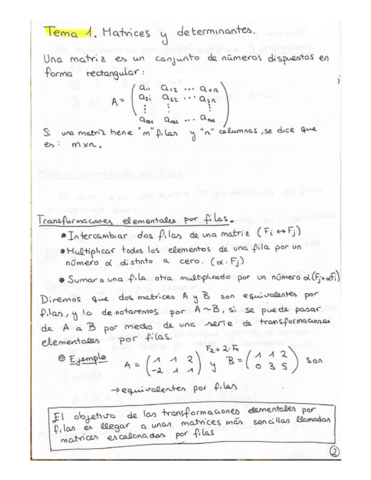 Tema 1. Matrices y determinantes.
Una matriz es un conjunto de números dispuestos en
forma rectangular:
A = ( a11 a12 ... a1n
a21 a22 ... a2n
⋮ ⋮ ⋮
am1 am2 ... amn )
Si una matriz tiene "m" filas y "n" columnas, se dice que
es: mxn.
Transformaciones elementales por filas.
• Intercambiar dos filas de una matriz (Fi ↔ Fj)
• Multiplicar todos los elementos de una fila por un
número α distinto a cero. (α·Fj)
• Sumar a una fila otra multiplicada por un número α (Fj+αFi)
Diremos que dos matrices A y B son equivalentes por
filas, y lo denotaremos por A~B, si se puede pasar
de A a B por medio de una serie de transformaciones
elementales por filas.
Ejemplo A = ( 1 1 2 / -2 1 1 ) F2+2·F1 y B = ( 1 1 2 / 0 3 5 ) son
→ equivalentes por filas
El objetivo de las transformaciones elementales por
filas es llegar a unas matrices más sencillas llamadas
matrices escalonadas por filas
2